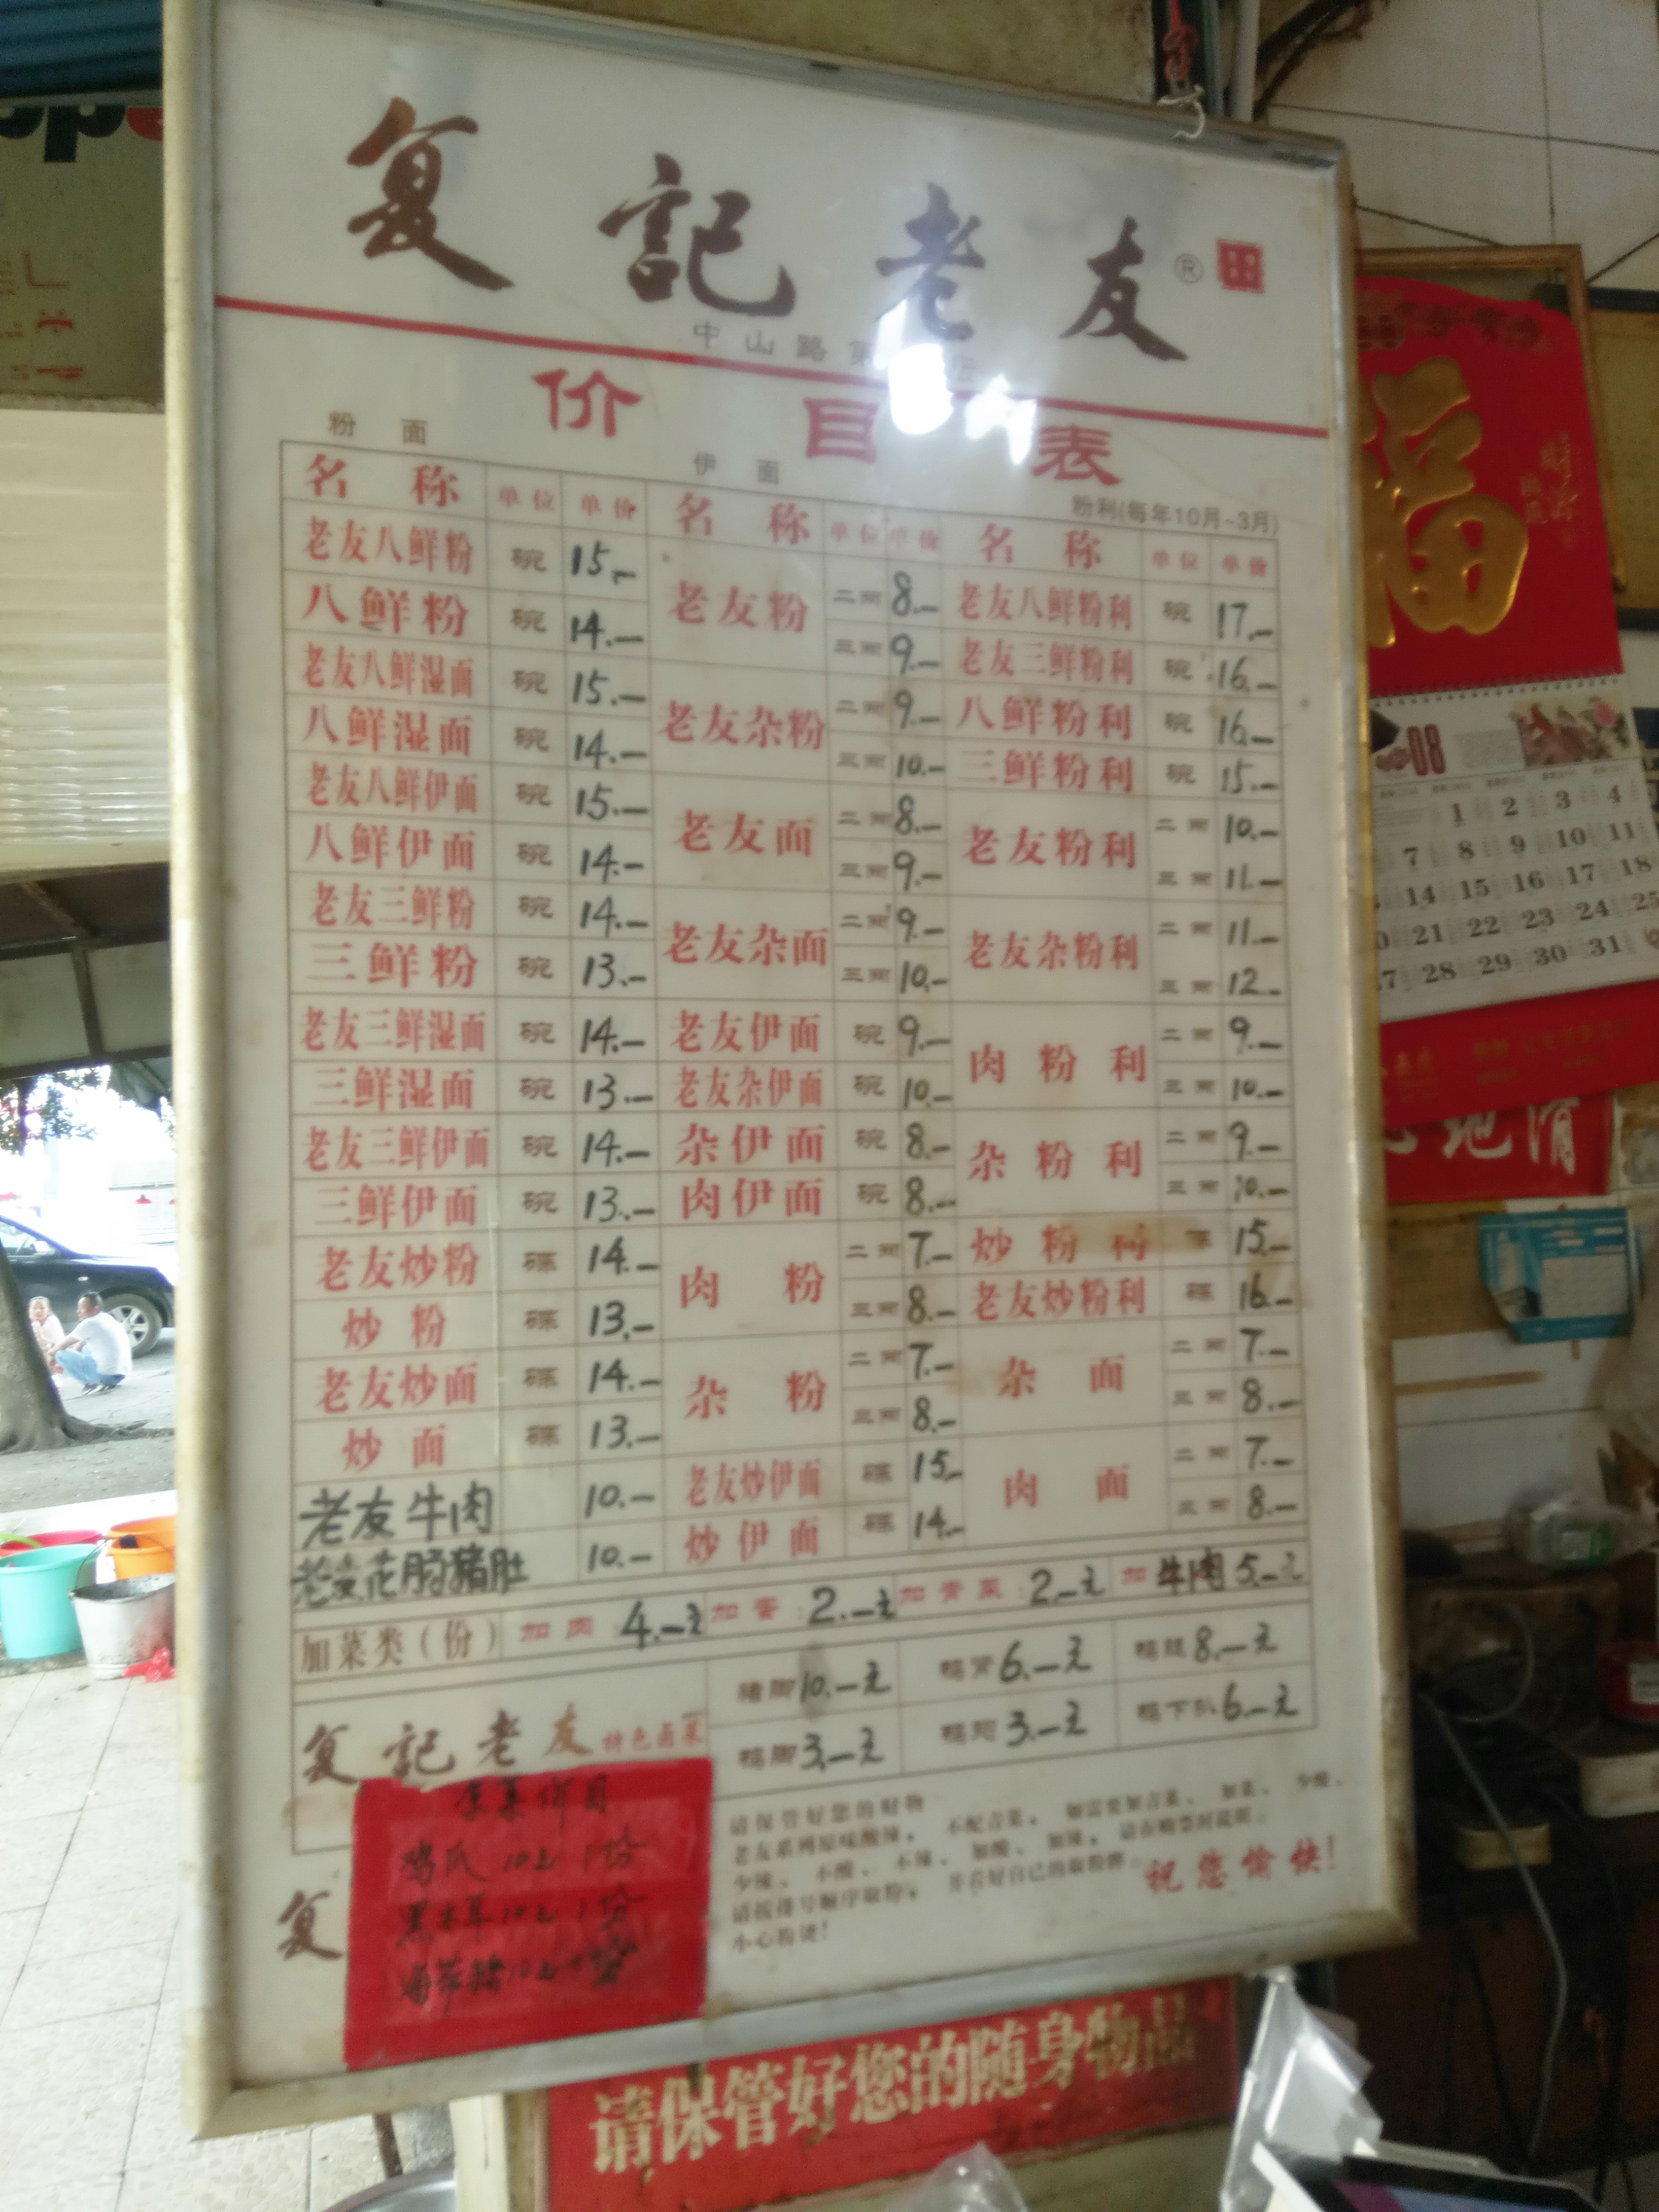 复記老友®
中山路第
价目表
粉面
伊面
粉利(每年10月~3月)
名称 单位 单价 名称 单位 单价 名称 单位 单价
老友八鲜粉 碗 15.-
八鲜粉 碗 14.-
老友八鲜湿面 碗 15.-
八鲜湿面 碗 14.-
老友八鲜伊面 碗 15.-
八鲜伊面 碗 14.-
老友三鲜粉 碗 14.-
三鲜粉 碗 13.-
老友三鲜湿面 碗 14.-
三鲜湿面 碗 13.-
老友三鲜伊面 碗 14.-
三鲜伊面 碗 13.-
老友炒粉 碟 14.-
炒粉 碟 13.-
老友炒面 碟 14.-
炒面 碟 13.-
老友牛肉 10.-
老友花肠猪肚 10.-
老友粉 二两 8.-
三两 9.-
老友杂粉 二两 9.-
三两 10.-
老友面 二两 8.-
三两 9.-
老友杂面 二两 9.-
三两 10.-
老友伊面 碗 9.-
老友杂伊面 碗 10.-
杂伊面 碗 8.-
肉伊面 碗 8.-
肉粉 二两 7.-
三两 8.-
杂粉 二两 7.-
三两 8.-
老友炒伊面 碟 15.-
炒伊面 碟 14.-
老友八鲜粉利 碗 17.-
老友三鲜粉利 碗 16.-
八鲜粉利 碗 16.-
三鲜粉利 碗 15.-
老友粉利 二两 10.-
三两 11.-
老友杂粉利 二两 11.-
三两 12.-
肉粉利 二两 9.-
三两 10.-
杂粉利 二两 9.-
三两 10.-
炒粉利 碟 15.-
老友炒粉利 碟 16.-
杂面 二两 7.-
三两 8.-
肉面 二两 7.-
三两 8.-
加菜类(份) 加肉:4.-元 加蛋:2.-元 加青菜:2.-元 加牛肉5.-元
复記老友特色卤菜
猪脚10.-元 鸭肾6.-元 鸭腿8.-元
鸭脚3.-元 鸭翅3.-元 鸭下扒6.-元
价目
鸡爪10元1份
黑木耳10元1份
10元
复
请保管好您的财物
老友系列原味酸辣,不配青菜,如需要加青菜、加菜、少酸、
少辣、不酸、不辣、加酸、加辣,请在购票时说明。
请按排号顺序取粉,并看好自己的取粉牌。
小心粉烫!
祝您愉快!
请保管好您的随身物品
福
08
1 2 3 4
7 8 9 10 11
14 15 16 17 18
21 22 23 24 25
28 29 30 31
地清